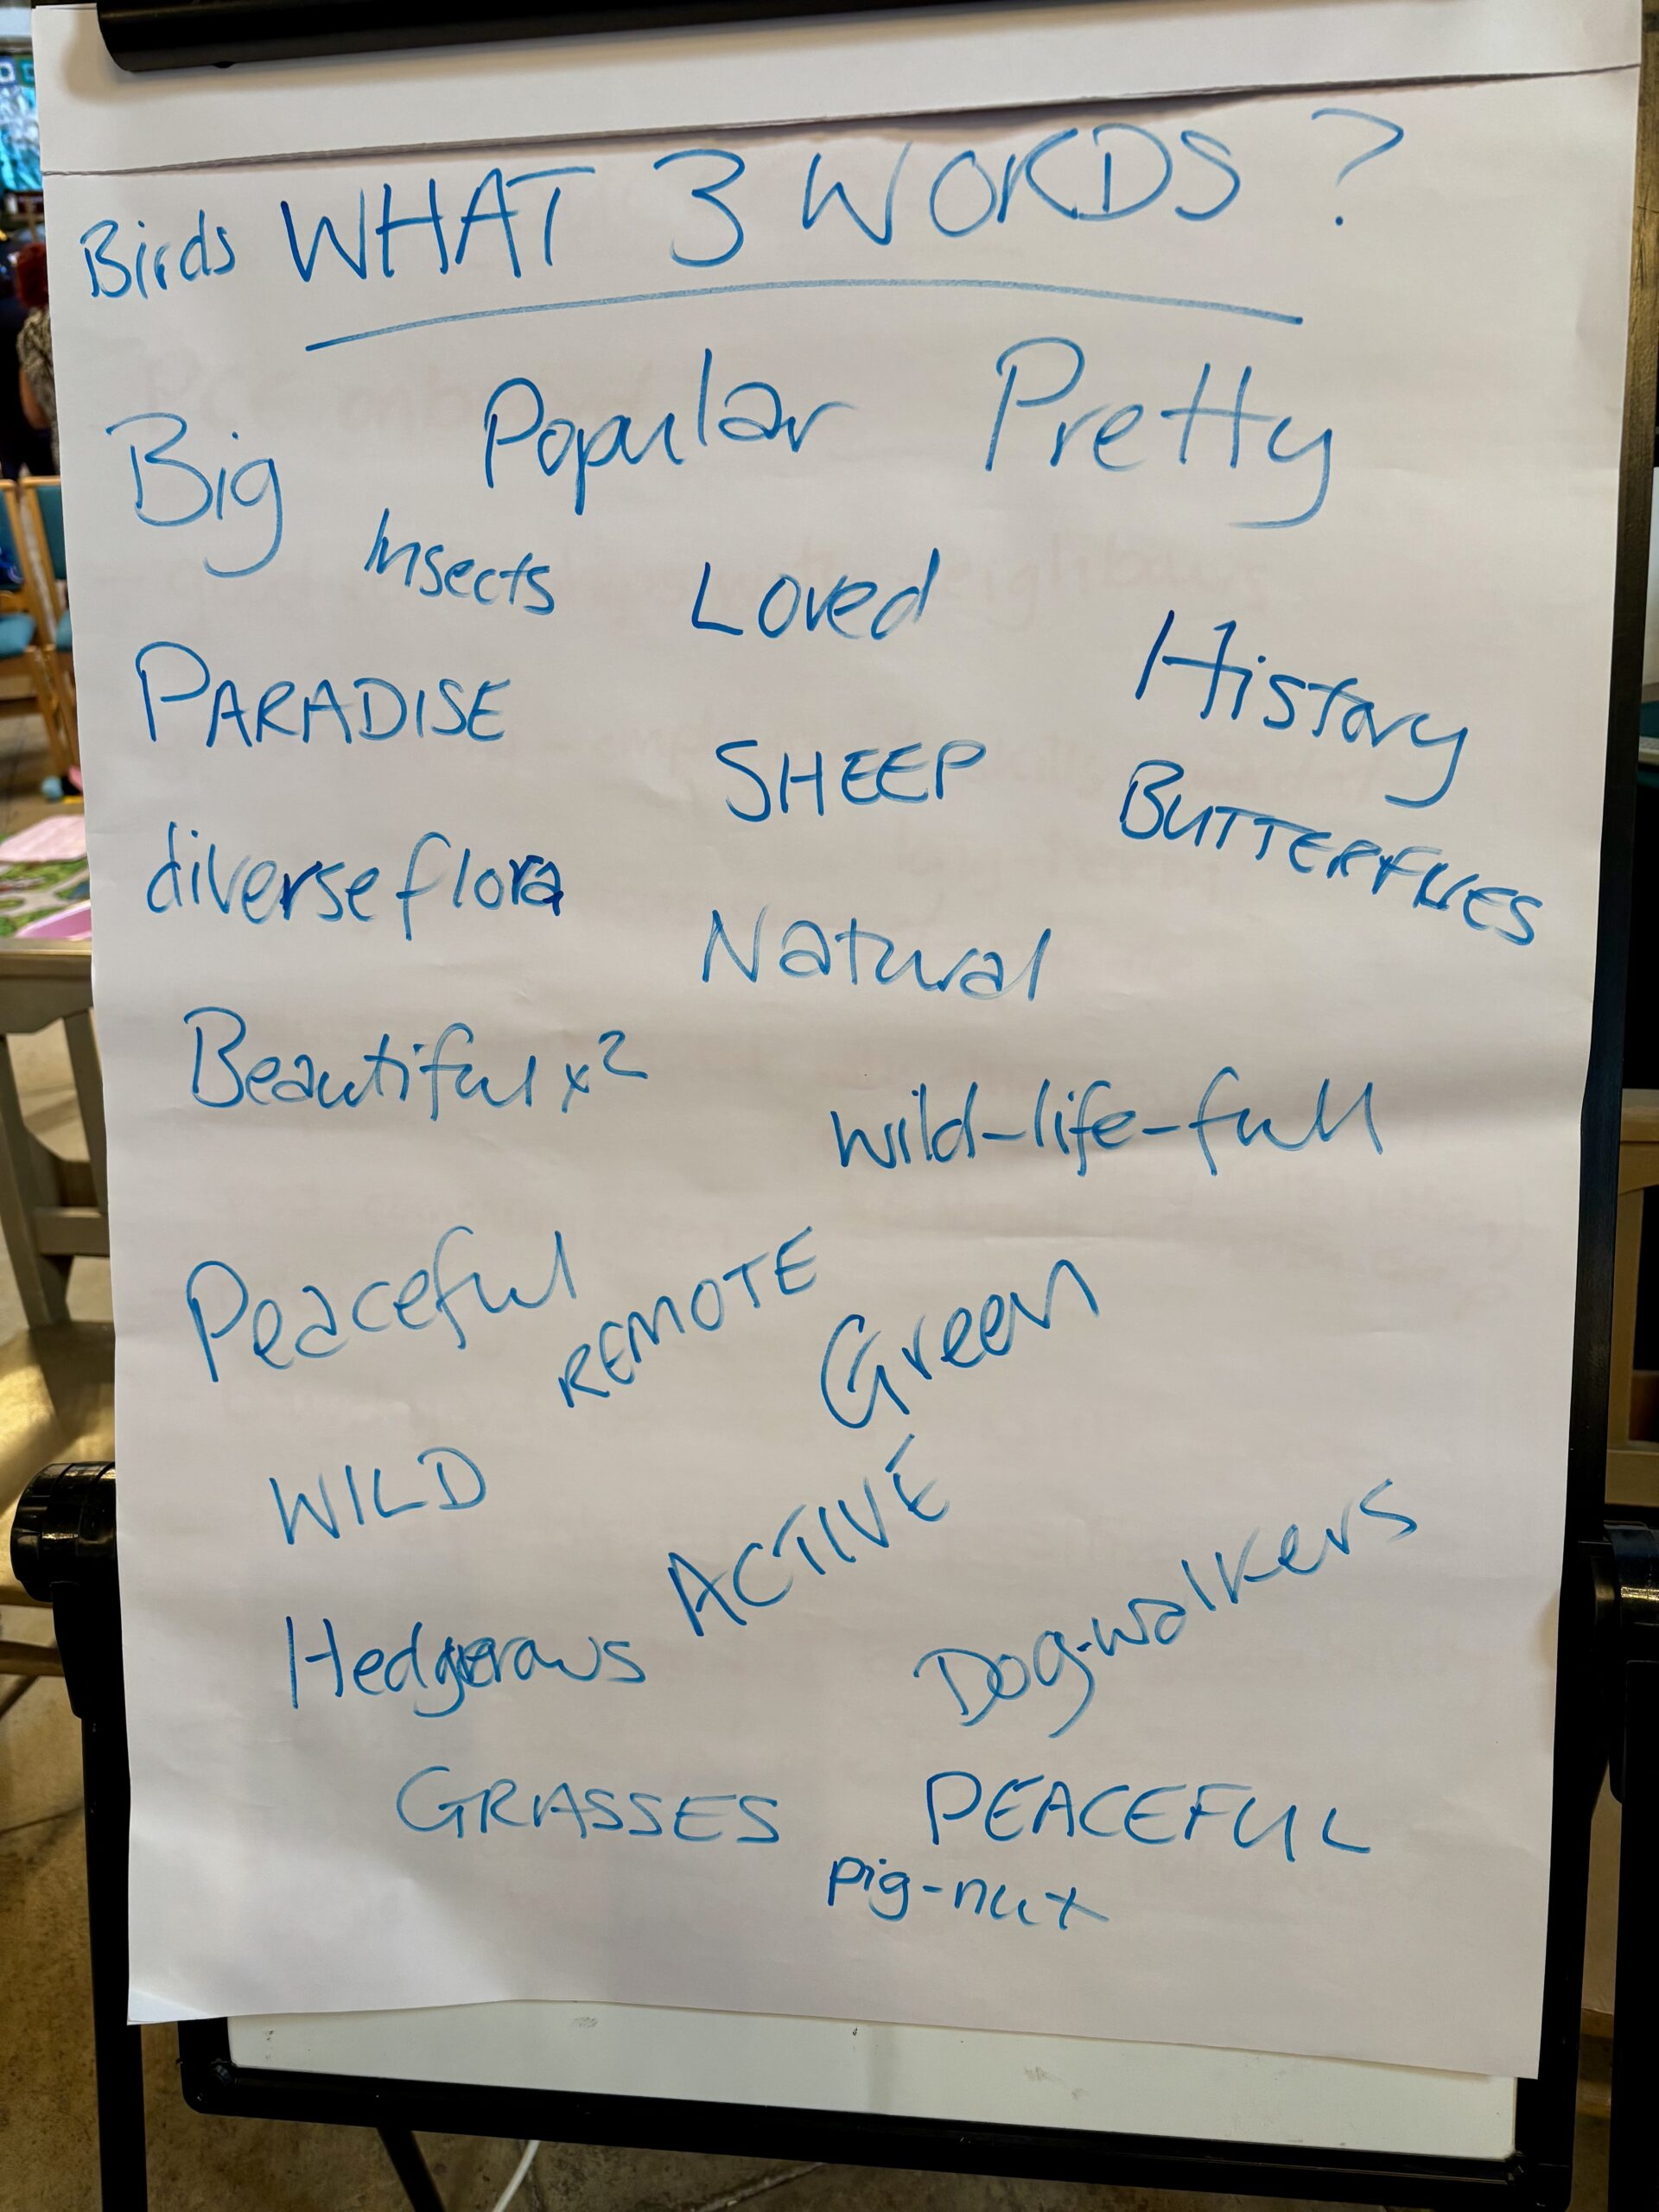 Birds WHAT 3 WORDS ?
Big Popular Pretty
Insects Loved
PARADISE History
SHEEP BUTTERFLIES
diverse flora
Natural
Beautiful x2
wild-life-full
Peaceful REMOTE Green
WILD ACTIVE
Hedgerows Dog-walkers
GRASSES PEACEFUL
pig-nut